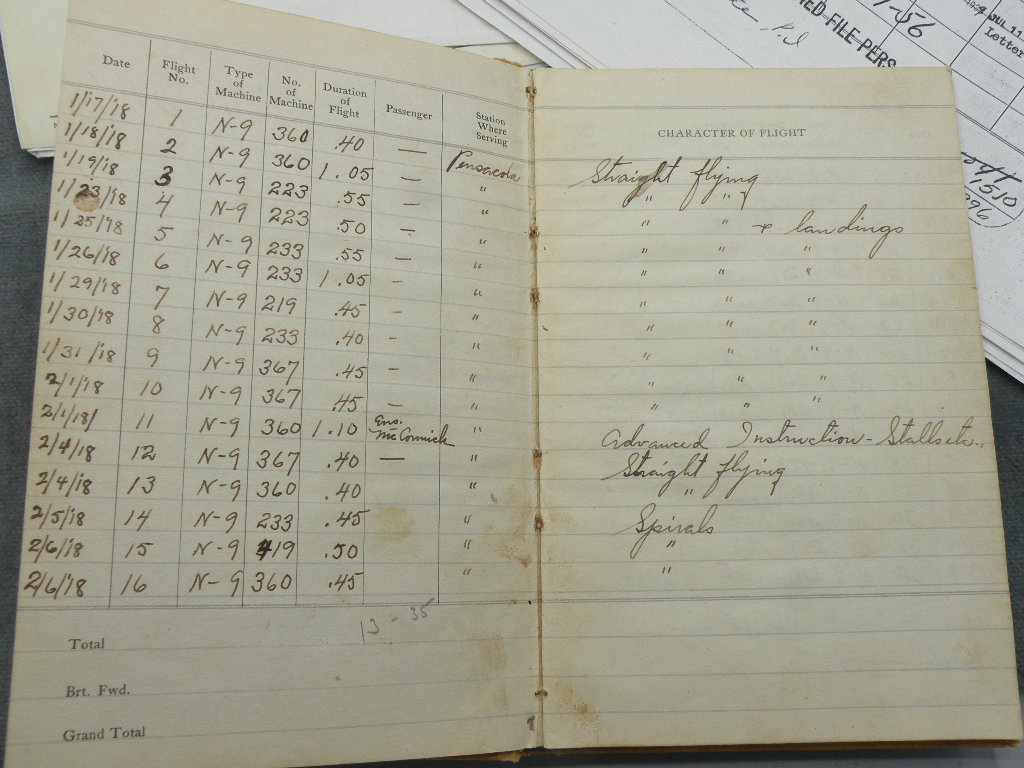 1952 JUL 11
Letter
ED FILE PERS
-56
7510
296
Date Flight No. Type of Machine No. of Machine Duration of Flight Passenger Station Where Serving
CHARACTER OF FLIGHT
1/17/'18 1 N-9 360 .40 — Pensacola Straight flying
1/18/'18 2 N-9 360 1.05 — " " "
1/19/'18 3 N-9 223 .55 — " " " & landings
1/23/'18 4 N-9 223 .50 — " " " "
1/25/'18 5 N-9 233 .55 — " " " "
1/26/'18 6 N-9 233 1.05 – " " " "
1/29/'18 7 N-9 219 .45 – " " " "
1/30/'18 8 N-9 233 .40 – " " " "
1/31/'18 9 N-9 367 .45 – " " " "
2/1/'18 10 N-9 367 .45 — " " " "
2/1/18/ 11 N-9 360 1.10 Ens. McCormick " Advanced Instruction - Stalls etc.
2/4/'18 12 N-9 367 .40 — " Straight flying
2/4/'18 13 N-9 360 .40 " "
2/5/'18 14 N-9 233 .45 " Spirals
2/6/'18 15 N-9 419 .50 " "
2/6/'18 16 N-9 360 .45 " "
13-35
Total
Brt. Fwd.
Grand Total